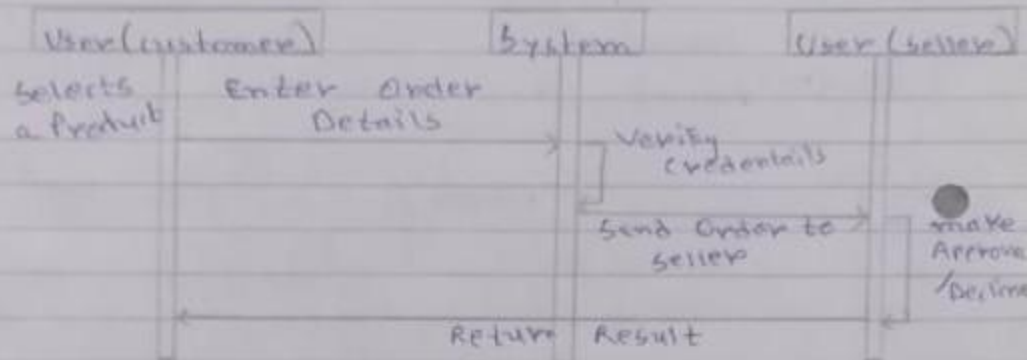 User(customer)
System
User (seller)
Selects
a Product
Enter Order
Details
Verify
Credentails
Send Order to
Seller
make
Approve
/Decline
Return Result